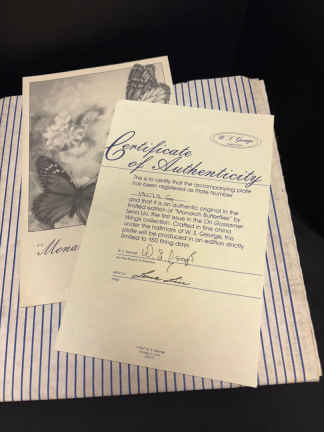 W. S. George
Certificate
of Authenticity
This is to certify that the accompanying plate
has been registered as Plate Number
and that it is an authentic original in the
limited edition of "Monarch Butterflies" by
Lena Liu, the first issue in the On Gossamer
Wings collection. Crafted in fine china
under the hallmark of W. S. George, this
plate will be produced in an edition strictly
limited to 150 firing days.
W. S. George
"Mona